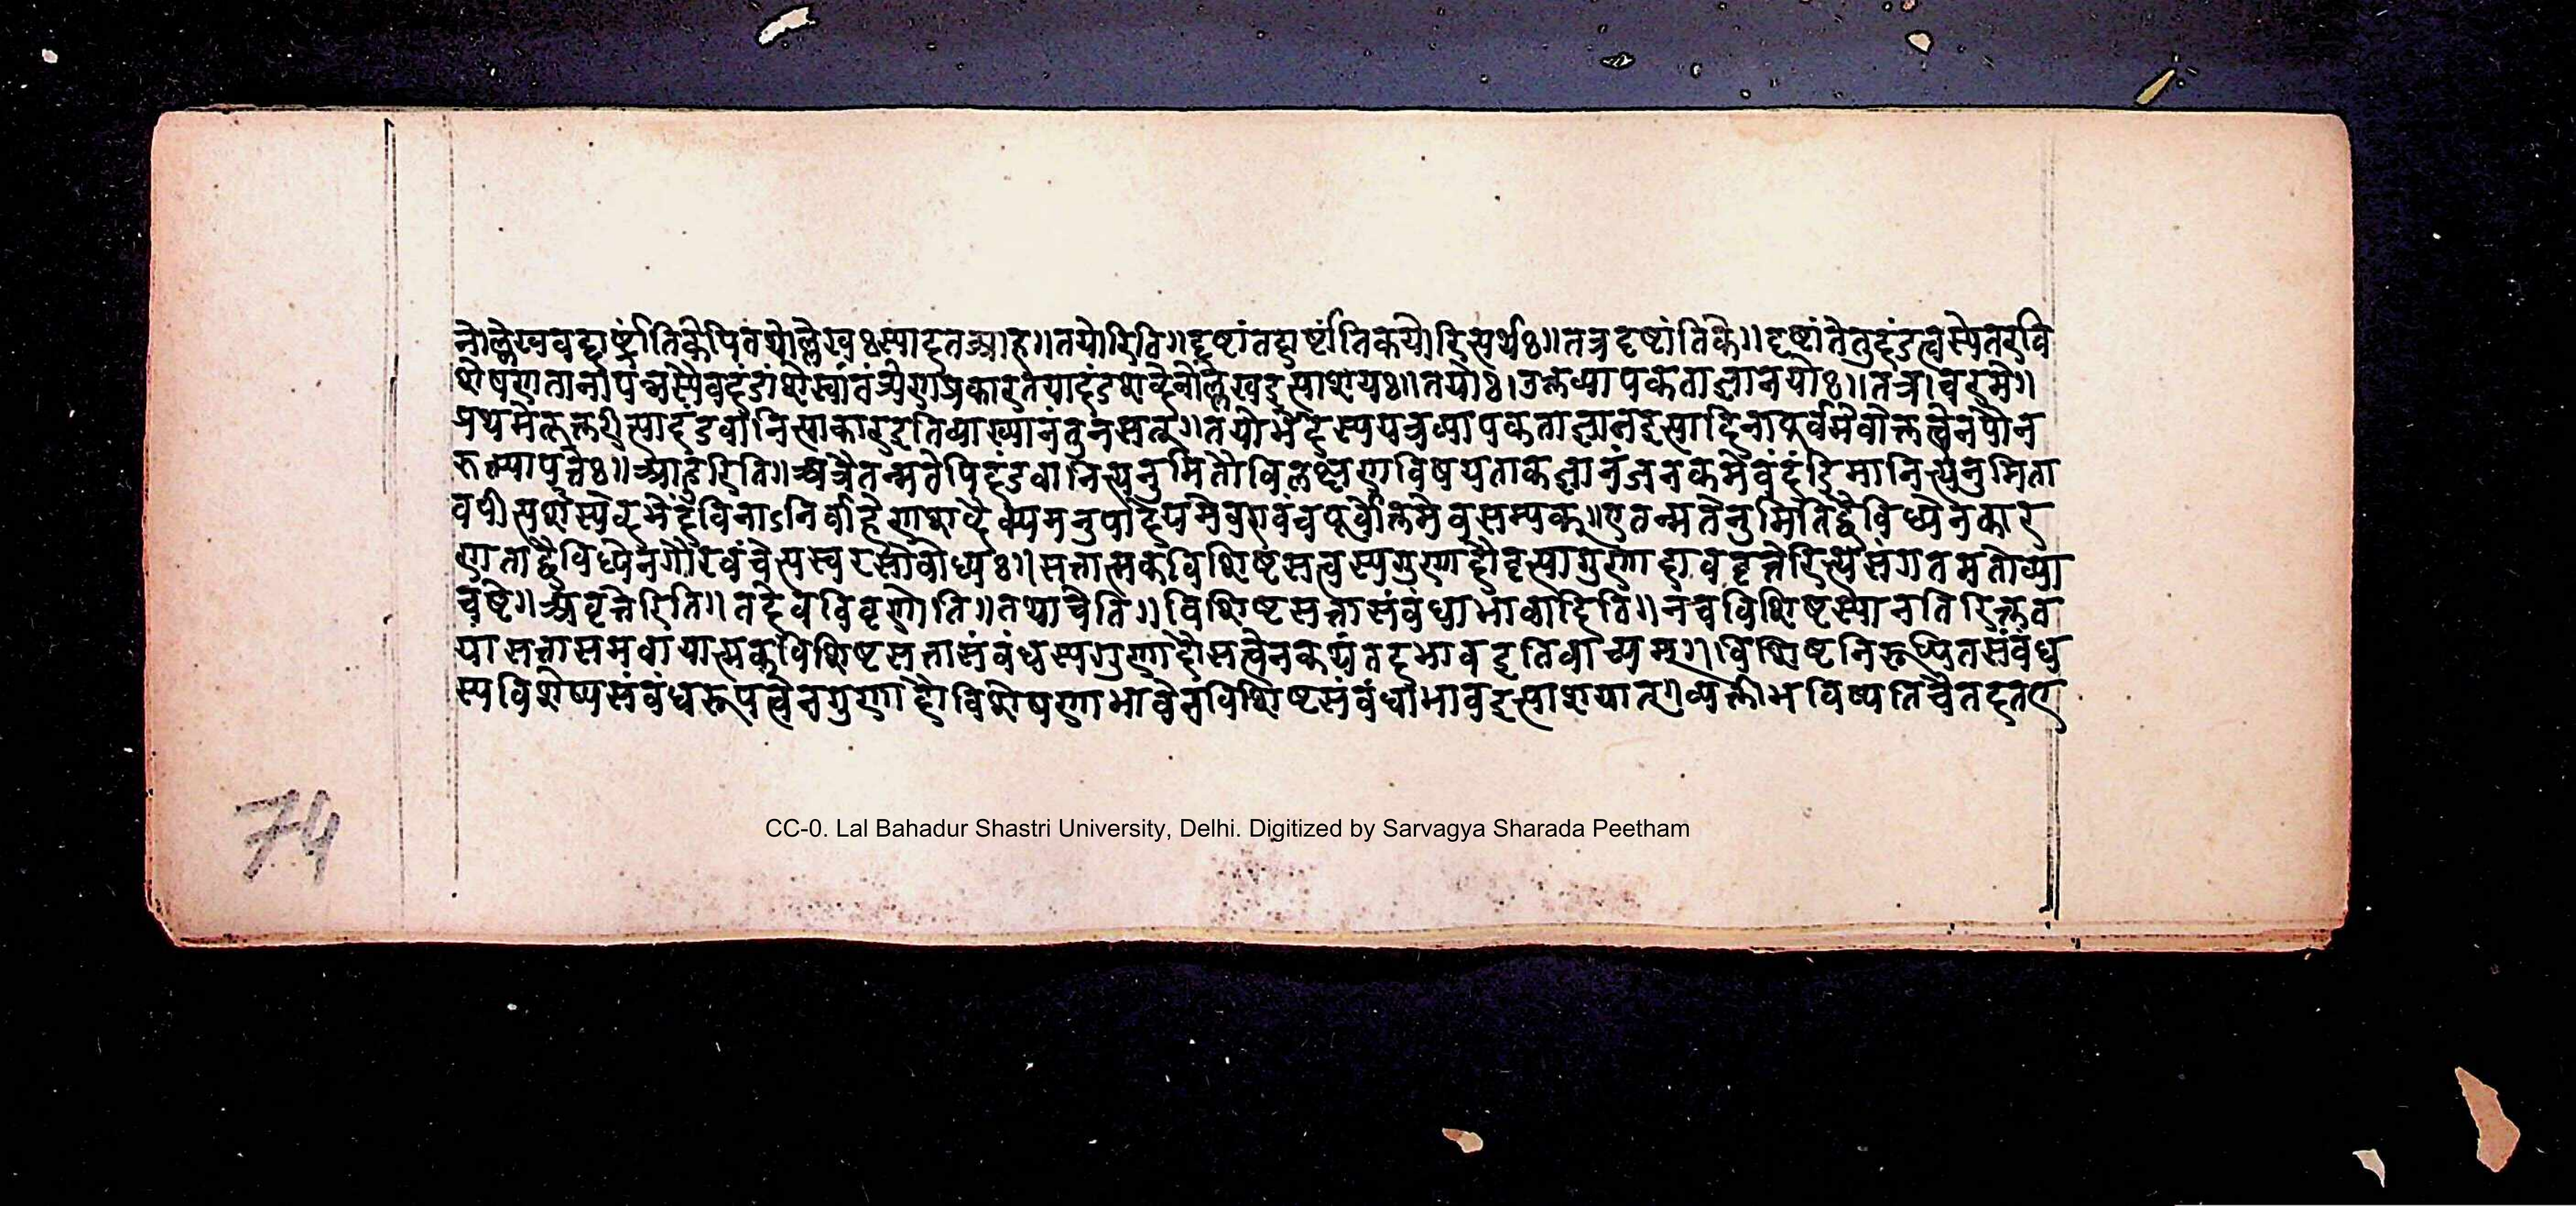 नोल्लेखवद्दार्ष्टांतिकेपितयोल्लेखः स्यादतआह॥तयोरिति॥दृष्टांतदार्ष्टांतिकयोरित्यर्थः॥तत्रदृष्टांतिके॥दृष्टांतेतुदंडत्वस्येतरवि
शेषणतानापन्नस्यैवदंडांशेस्वातंत्र्येणप्रकारतयादंडशब्देनोल्लेखइत्याशयः॥तयोः।उक्तव्यापकताज्ञानयोः॥तत्र।चरमे॥
प्रथमेतूक्तरीत्यादंडवानित्याकारइतिव्याख्यानंतुनसत्॥तयोर्भेदस्ययत्रव्यापकताज्ञानइत्यादिनापूर्वमेवोक्तत्वेनपौन
रुक्त्यापत्तेः॥आहुरिति॥अत्रैतन्मतेपिदंडवानित्यनुमितौविलक्षणविषयताकज्ञानंजनकमेवंदंडिमानित्यनुमिता
वपीत्यर्थस्येदमेंविनाऽनिर्वाहेणशब्दैक्यमनुपादेयमेवएवंचपूर्वोक्तमेवसम्यक्॥एतन्मतेनुमितिद्वैविध्येनकार
णताद्वैविध्येनगौरवंचेत्यस्वरसोबोध्यः॥सत्तात्मकविशिष्टसत्वस्यगुणादौवृत्त्यागुणाद्यवृत्तेरित्यसंगतमतोव्या
चष्टे॥अवृत्तेरिति॥तदेवविवृणोति॥तथाचेति॥विशिष्टसत्तासंबंधाभावादिति॥नचविशिष्टस्यानतिरिक्तत
यासत्तासमवायात्मकविशिष्टसत्तासंबंधस्यगुणादौसत्वेनकथंतदभावइतिवाच्यम्॥विशिष्टनिरूपितसंबंध
स्यविशेष्यसंबंधरूपत्वेनगुणादौविशेषणाभावेनविशिष्टसंबंधाभावइत्याशयात्॥व्यक्तीभविष्यतिचैतदतए
74
CC-0. Lal Bahadur Shastri University, Delhi. Digitized by Sarvagya Sharada Peetham